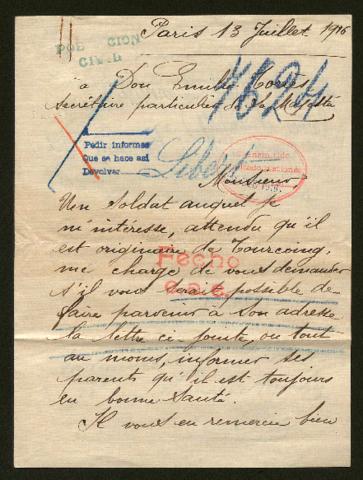 Paris 13 Juillet 1916
POB CION
CIVIL
à Don Emilio Torres
secrétaire particulier de Sa Majesté
Pedir informes
Que se hace asi
Devolver
Monsieur
Un soldat auquel je
m'intéresse, attendu qu'il
est originaire de Tourcoing,
me charge de vous demander
Fecho
s'il vous serait possible de
faire parvenir à son adresse
la lettre ci jointe, ou tout
au moins, informer ses
parents qu'il est toujours
en bonne santé.
Il vous en remercie bien